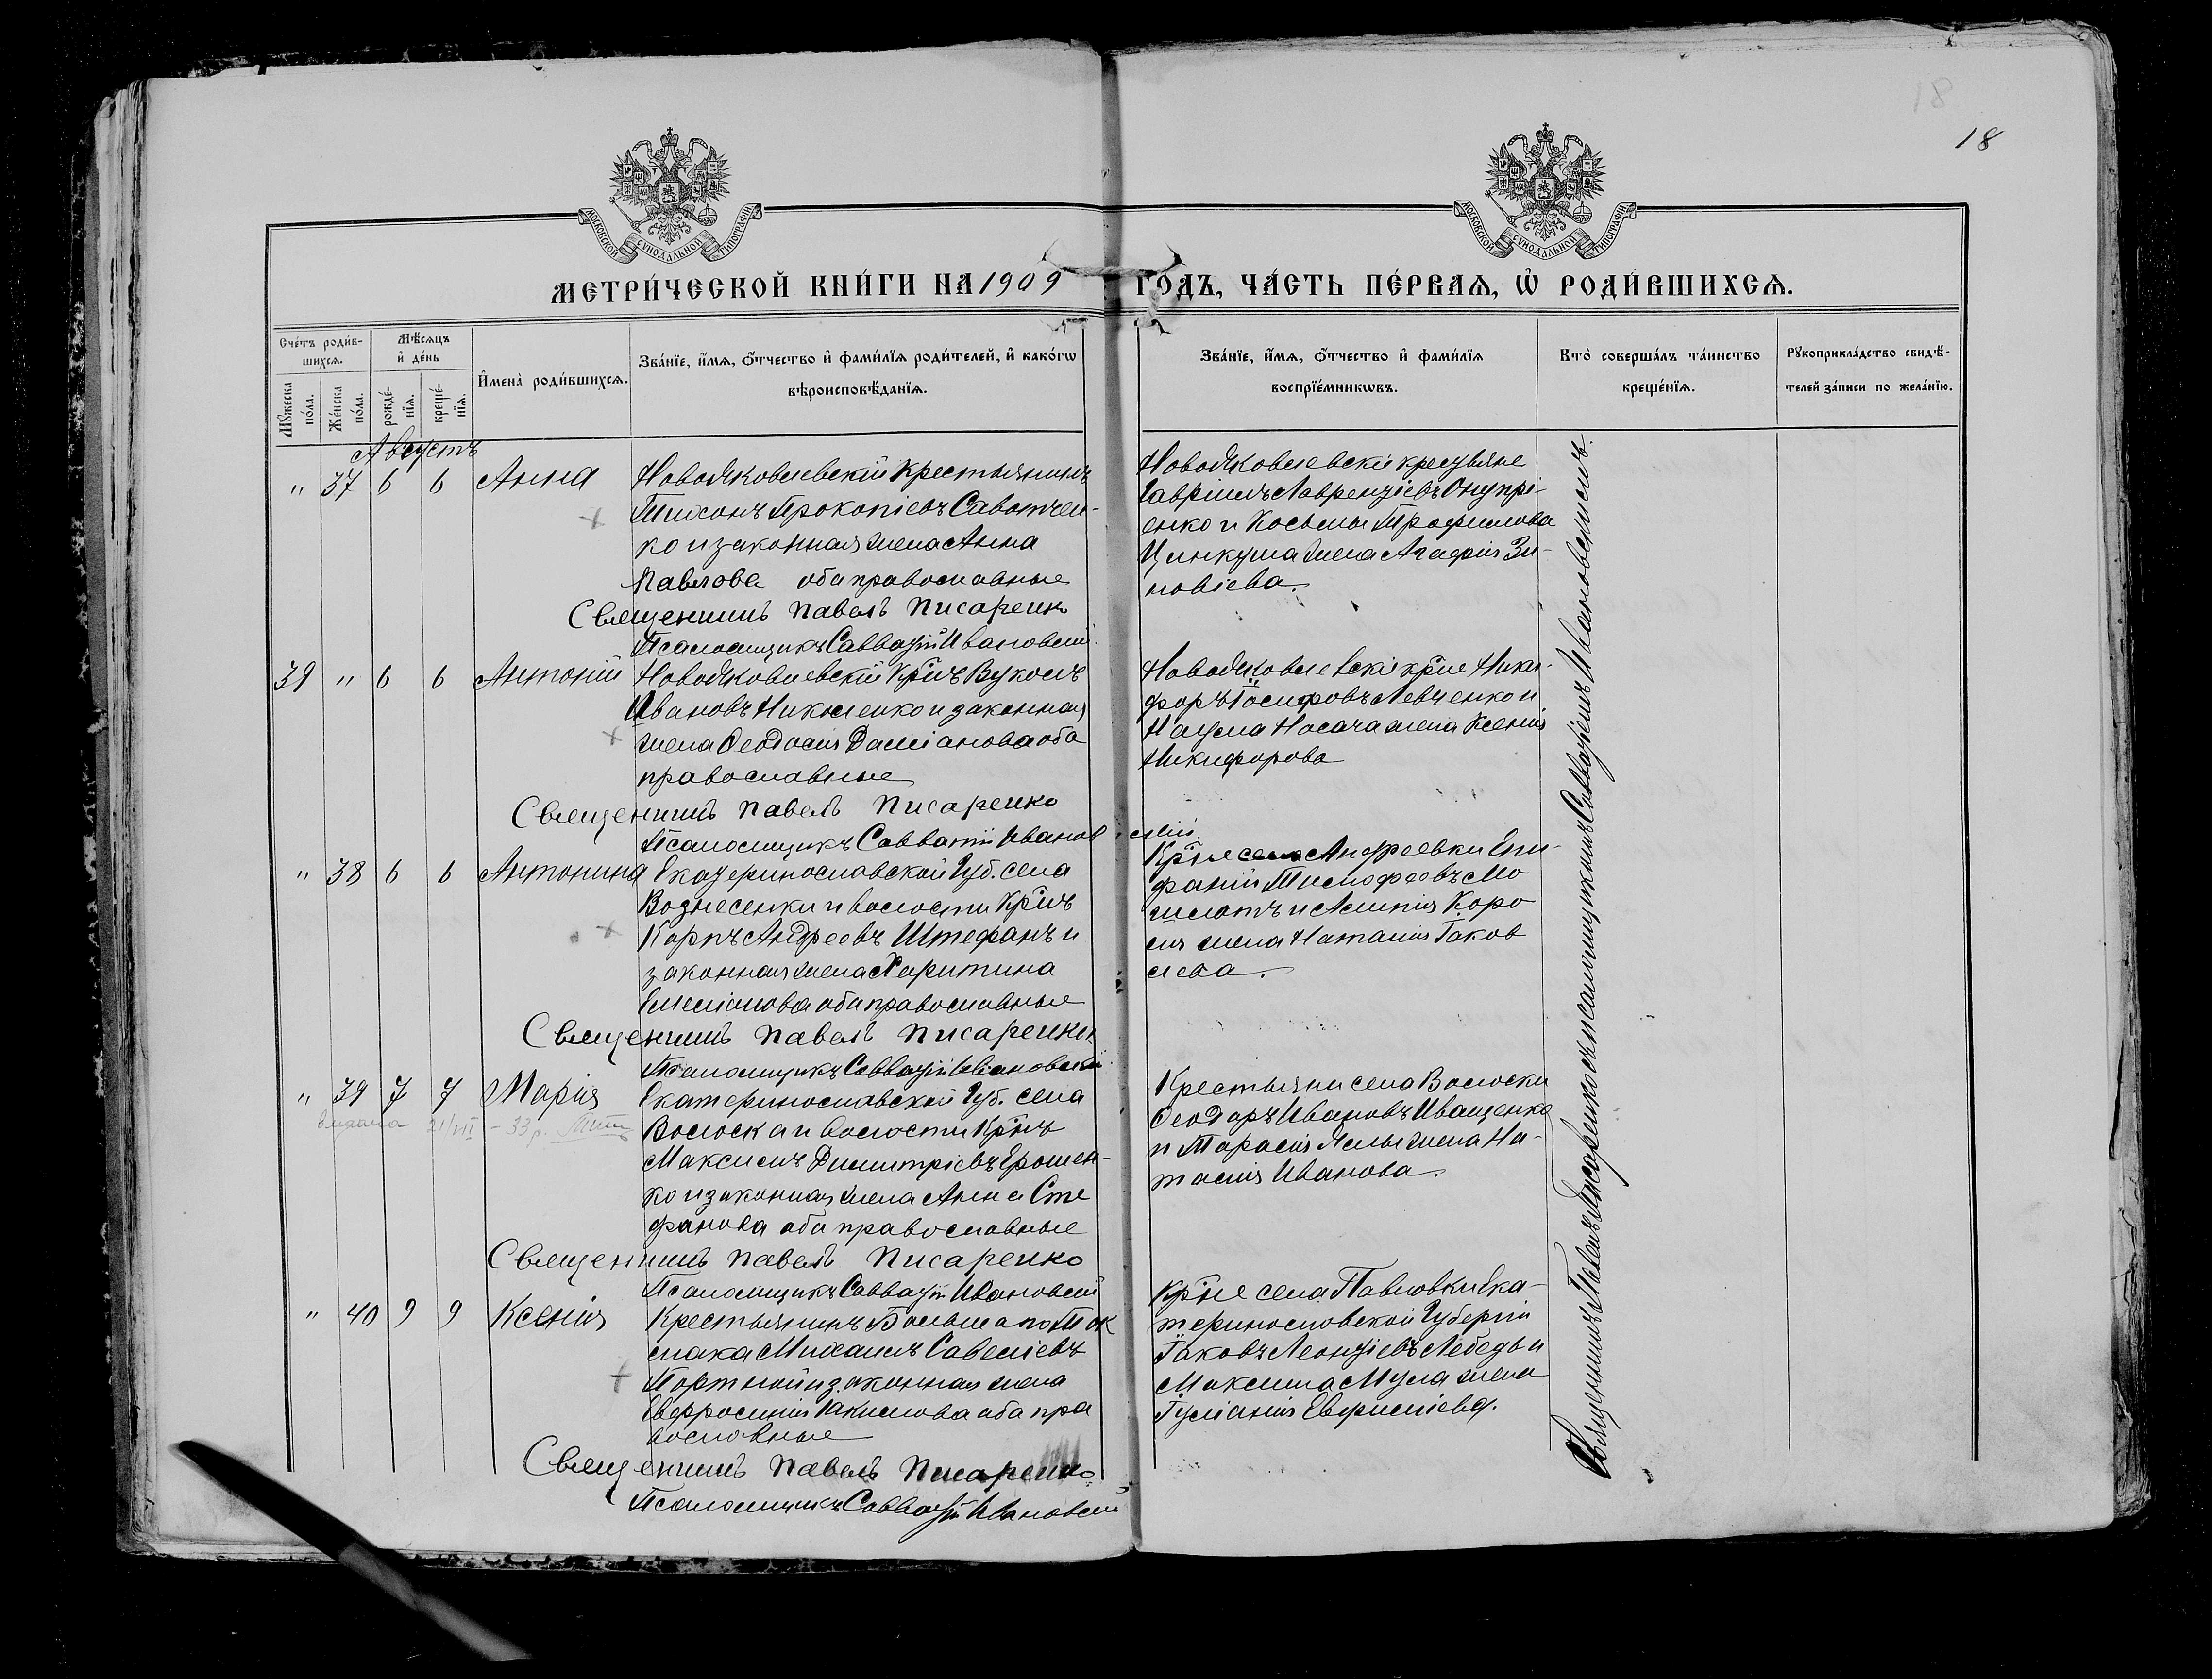 18
18
МОСКОВСКОЙ СѴНОДАЛЬНОЙ ТИПОГРАФІИ
МОСКОВСКОЙ СѴНОДАЛЬНОЙ ТИПОГРАФІИ
МЕТРИ́ЧЕСКОЙ КНИ́ГИ НА 1909 ГО́ДЪ, ЧА́СТЬ ПЕ́РВАѦ, Ѡ҆ РОДИ́ВШИХСѦ.
Сче́тъ роди́в-
шихсѧ.
Мꙋ́жеска
по́ла.
Же́нска
по́ла.
Мѣ́сѧцъ
и҆ де́нь
рожде́-
нїѧ.
креще́-
нїѧ.
И҆мена̀ роди́вшихсѧ.
Зва́нїе, и҆́мѧ, ѻ҆́тчество и҆ фами́лїѧ роди́телей, и҆ како́гѡ
вѣроисповѣ́данїѧ.
Зва́нїе, и҆́мѧ, ѻ҆́тчество и҆ фами́лїѧ
воспрїе́мникѡвъ.
Кто̀ соверша́лъ та́инство
креще́нїѧ.
Рꙋкоприкла́дство свидѣ́-
телей за́писи по жела́нїю.
Августъ
" 37 6 6 Анна
НовоЯковлевскій крестьянинъ
Тихонъ Прокопіевъ Саватчен-
ко и законная жена Анна
Павлова оба православные
Священникъ Павелъ Писаренко
Псаломщикъ Савватій Ивановскій
НовоЯковлевскіе крестьяне
Гавріилъ Лаврентіевъ Онупрі-
енко и Косьмы Трофимова
Цинкуша жена Агафія Зи-
новіева.
39 " 6 6 Антоній
НовоЯковлевскій Кр̃нъ Вуколъ
Ивановъ Николенко и законная
жена Ѳеодосія Даміанова оба
православные
Священникъ Павелъ Писаренко
Псаломщикъ Савватій Ивановскій
НовоЯковлевскіе кр̃не Ники-
форъ Іосифовъ Левченко и
Наума Носача жена Ксенія
Никифорова
" 38 6 6 Антонина
Екатеринославской Губ. села
Вознесенки и волости Кр̃нъ
Карпъ Андреевъ Штефанъ и
законная жена Харитина
Емеліанова оба православные
Священникъ Павелъ Писаренко
Псаломщикъ Савватій Ивановскій
Кр̃не села Андреевки Епи-
фаній Тимофеевъ Мо
и Коро
ля жена Наталія Іаков
лева.
" 39 7 7 Марія
Екатеринославской Губ. села
Волоска и волости Кр̃нъ
Максимъ Димитріевъ Ерошен-
ко и законная жена Анна Сте
фанова оба православные
Священникъ Павелъ Писаренко
Псаломщикъ Савватій Ивановскій
Крестьяни села Волоски
Ѳеодоръ Ивановъ Иващенко
и жена На-
талія Иванова.
" 40 9 9 Ксенія
Крестьянинъ Большаго Ток
мака Михаилъ Савеліевъ
Портной и законная жена
Евфросинія Іакимова оба пра
вославные
Священникъ Павелъ Писаренко
Псаломщикъ Савватій Ивановскій
Кр̃не села Павловки Ека-
теринославской Губерніи
Іаковъ Леонтіевъ Лебедь и
Максима Мула жена
Іуліанія Евфиміева.
Священникъ Павелъ Писаренко съ псаломщикомъ Савватіемъ Ивановскимъ.